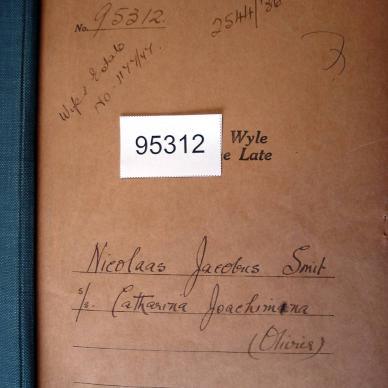 No. 95312.
254/4/36
Wife's Estate
No. 1177/47.
95312
Wyle
e Late
Nicolaas Jacobus Smit
s/s. Catharina Joachimina
(Olivier)